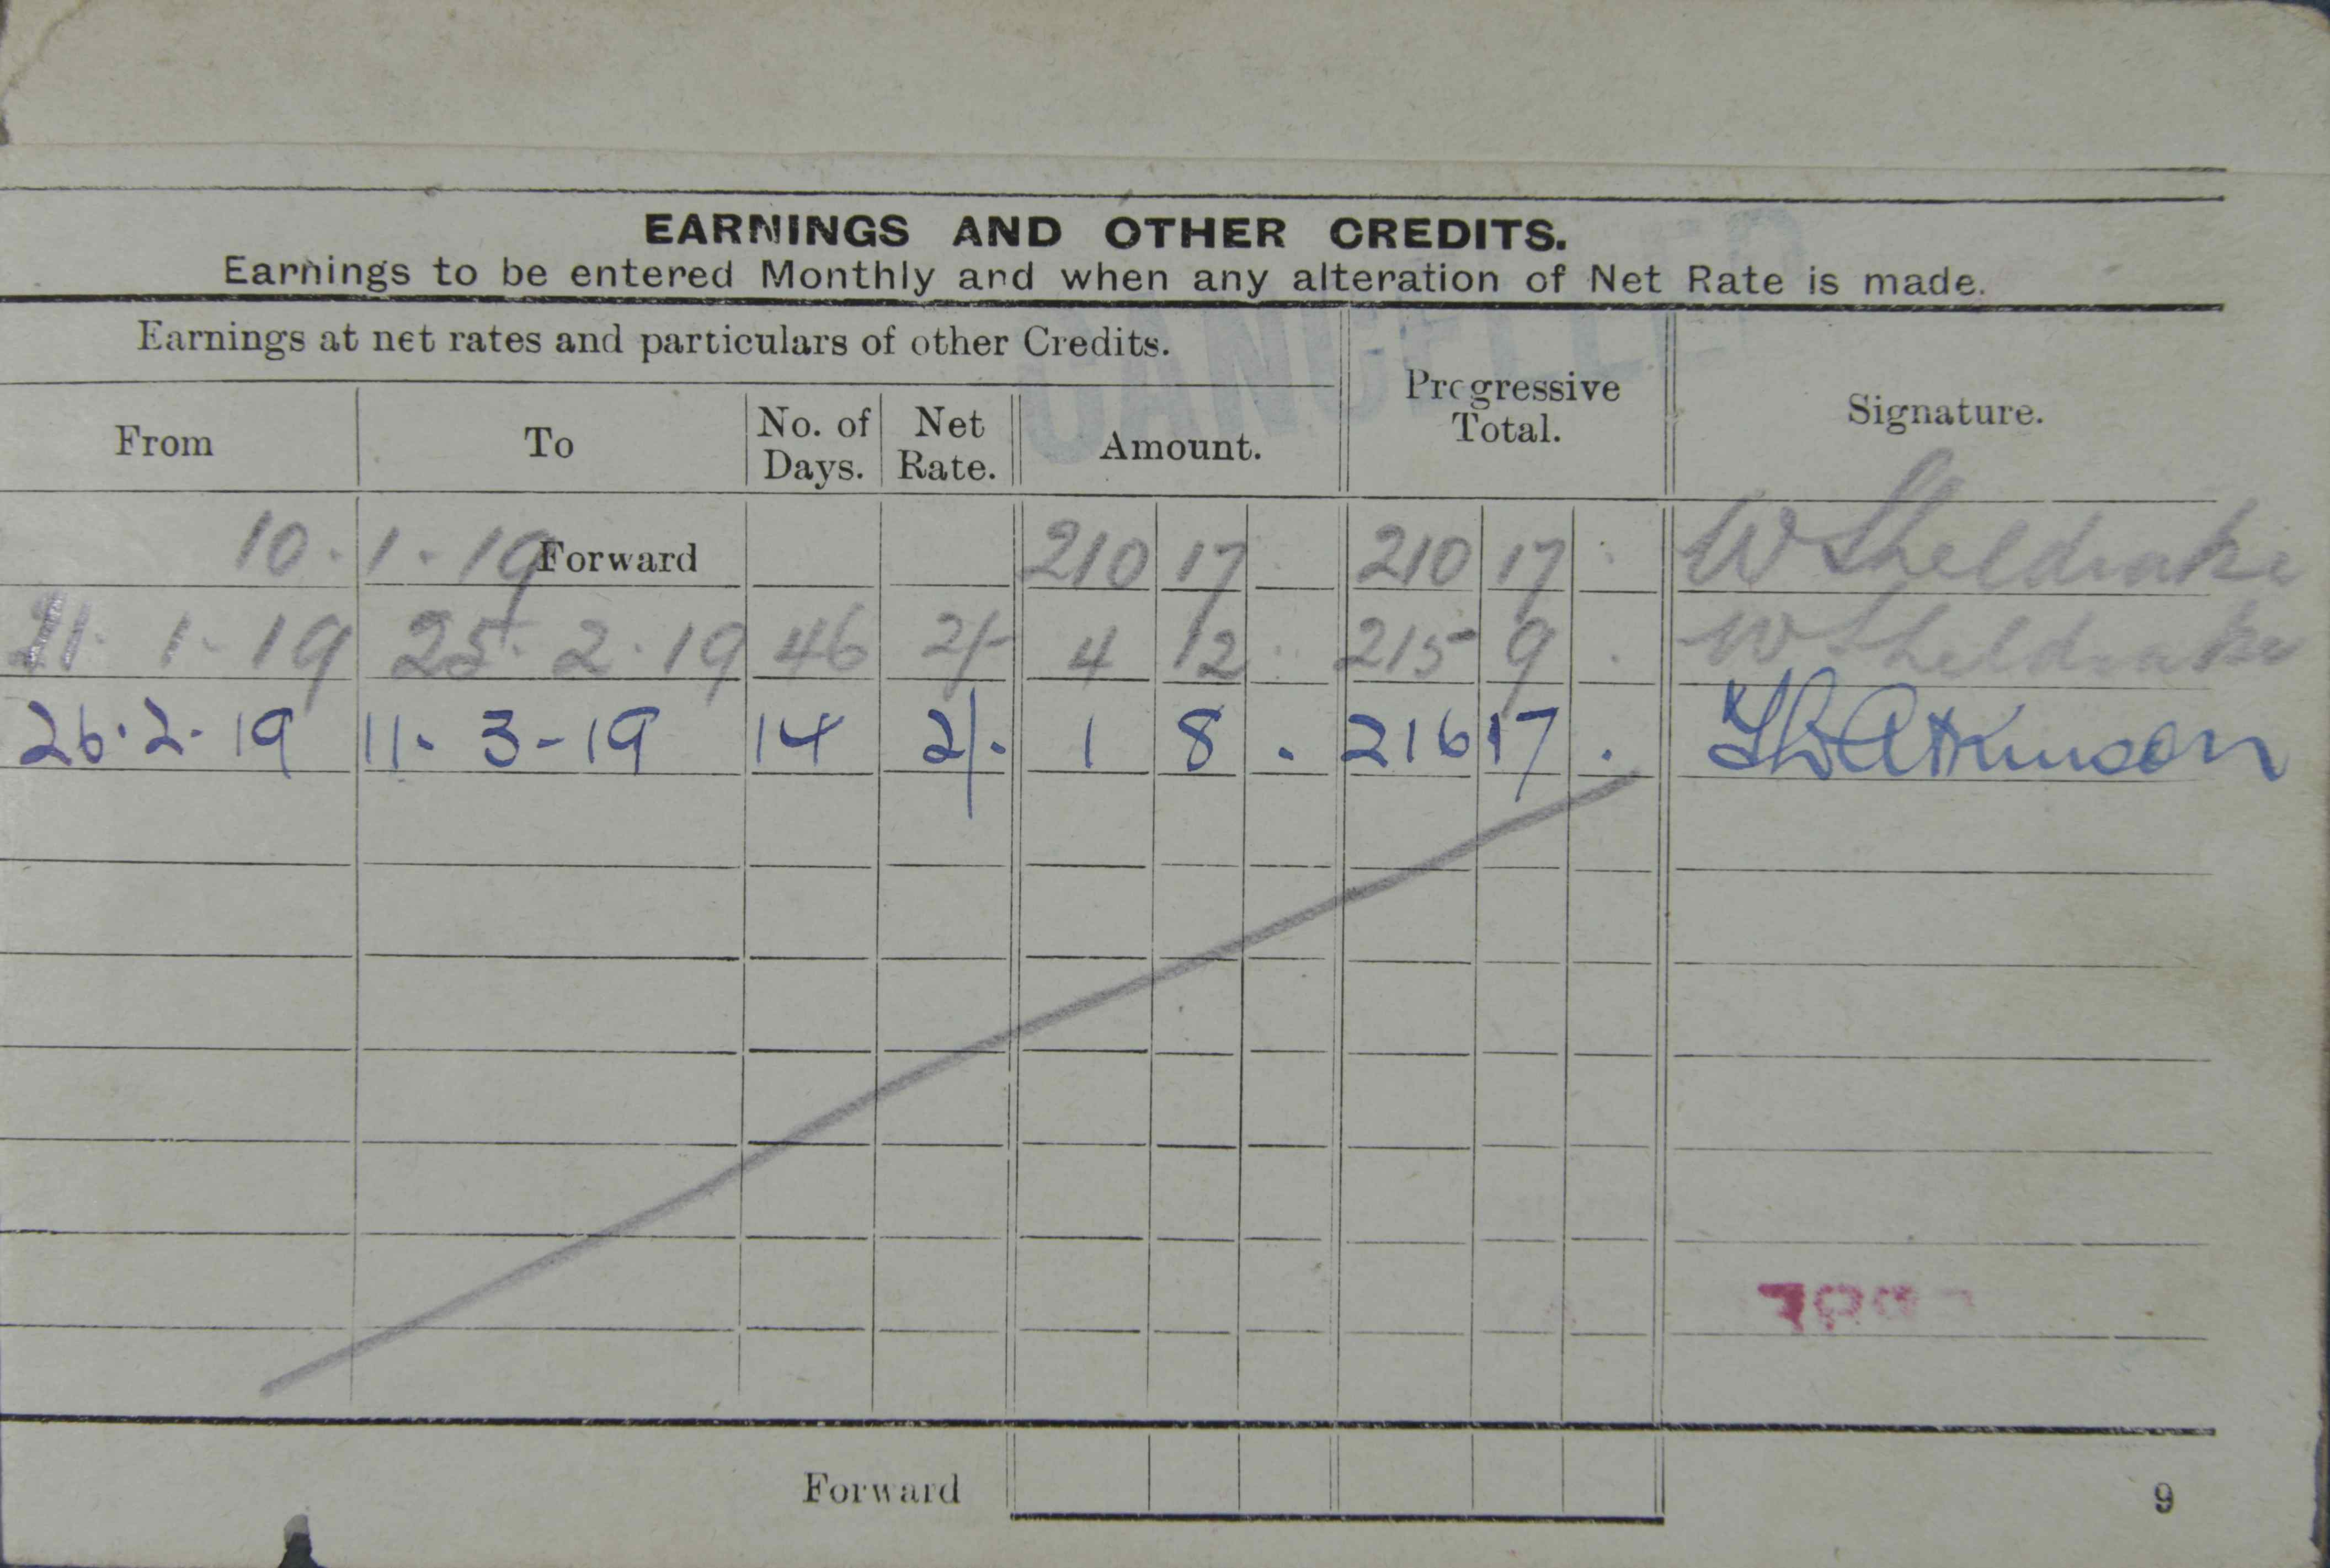 EARNINGS AND OTHER CREDITS.
Earnings to be entered Monthly and when any alteration of Net Rate is made.
CANCELLED
Earnings at net rates and particulars of other Credits.
Progressive Total.
Signature.
From To No. of Days. Net Rate. Amount.
10.1.19 Forward 210 17 . 210 17 . W Sheldrake
11.1.19 25.2.19 46 2/- 4 12 . 215 9 . W Sheldrake
26.2.19 11.3-19 14 2/- 1 8 . 216 17 . Atkinson
Forward
9